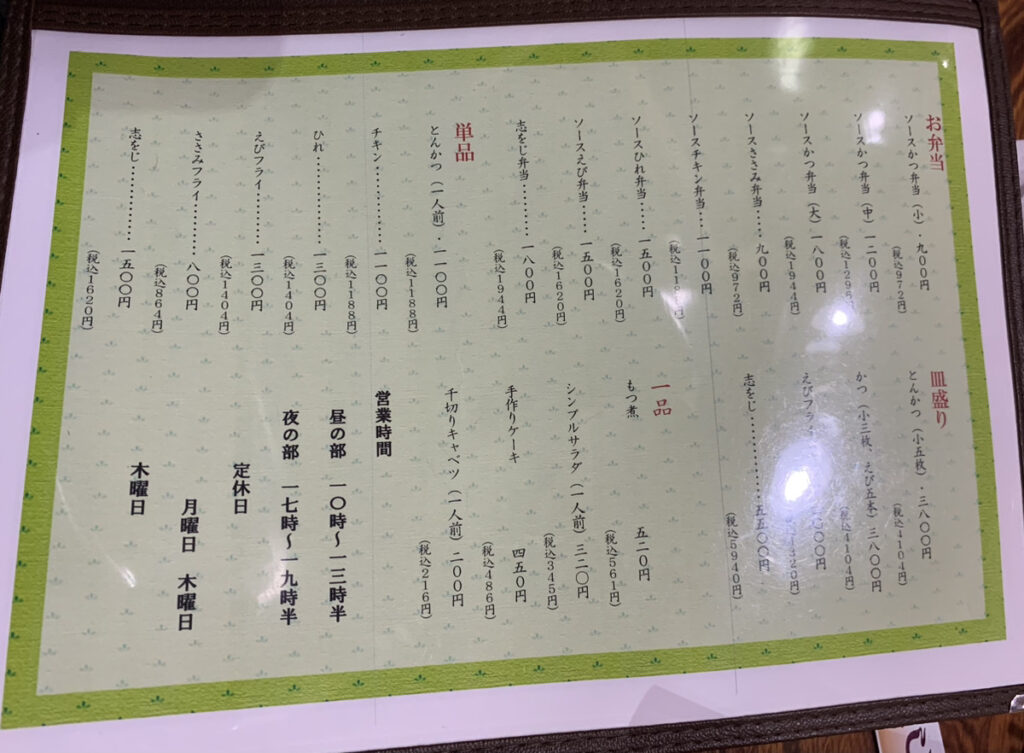 お弁当
ソースかつ弁当（小）・九〇〇円
（税込972円）
ソースかつ弁当（中）一二〇〇円
（税込1296円）
ソースかつ弁当（大）一八〇〇円
（税込1944円）
ソースささみ弁当・・・九〇〇円
（税込972円）
ソースチキン弁当・・・一一〇〇円
ソースひれ弁当・・・・一五〇〇円
（税込1620円）
ソースえび弁当・・・・一五〇〇円
（税込1620円）
志をじ弁当・・・・・・・一八〇〇円
（税込1944円）
単品
とんかつ（一人前）・一一〇〇円
（税込1188円）
チキン・・・・・・・・・・一一〇〇円
（税込1188円）
ひれ・・・・・・・・・・・・一三〇〇円
（税込1404円）
えびフライ・・・・・・・・一三〇〇円
（税込1404円）
ささみフライ・・・・・・・八〇〇円
（税込864円）
志をじ・・・・・・・・・・・一五〇〇円
（税込1620円）
皿盛り
とんかつ（小五枚）・三八〇〇円
（税込4104円）
かつ（小三枚、えび五本）三八〇〇円
（税込4104円）
えびフライ
志をじ・・・・・・・・・・・五五〇〇円
（税込5940円）
一品
もつ煮 五二〇円
（税込561円）
シンプルサラダ（一人前）三二〇円
（税込345円）
手作りケーキ 四五〇円
（税込486円）
千切りキャベツ（一人前）二〇〇円
（税込216円）
営業時間
昼の部 一〇時〜一三時半
夜の部 一七時〜一九時半
定休日
月曜日 木曜日
木曜日